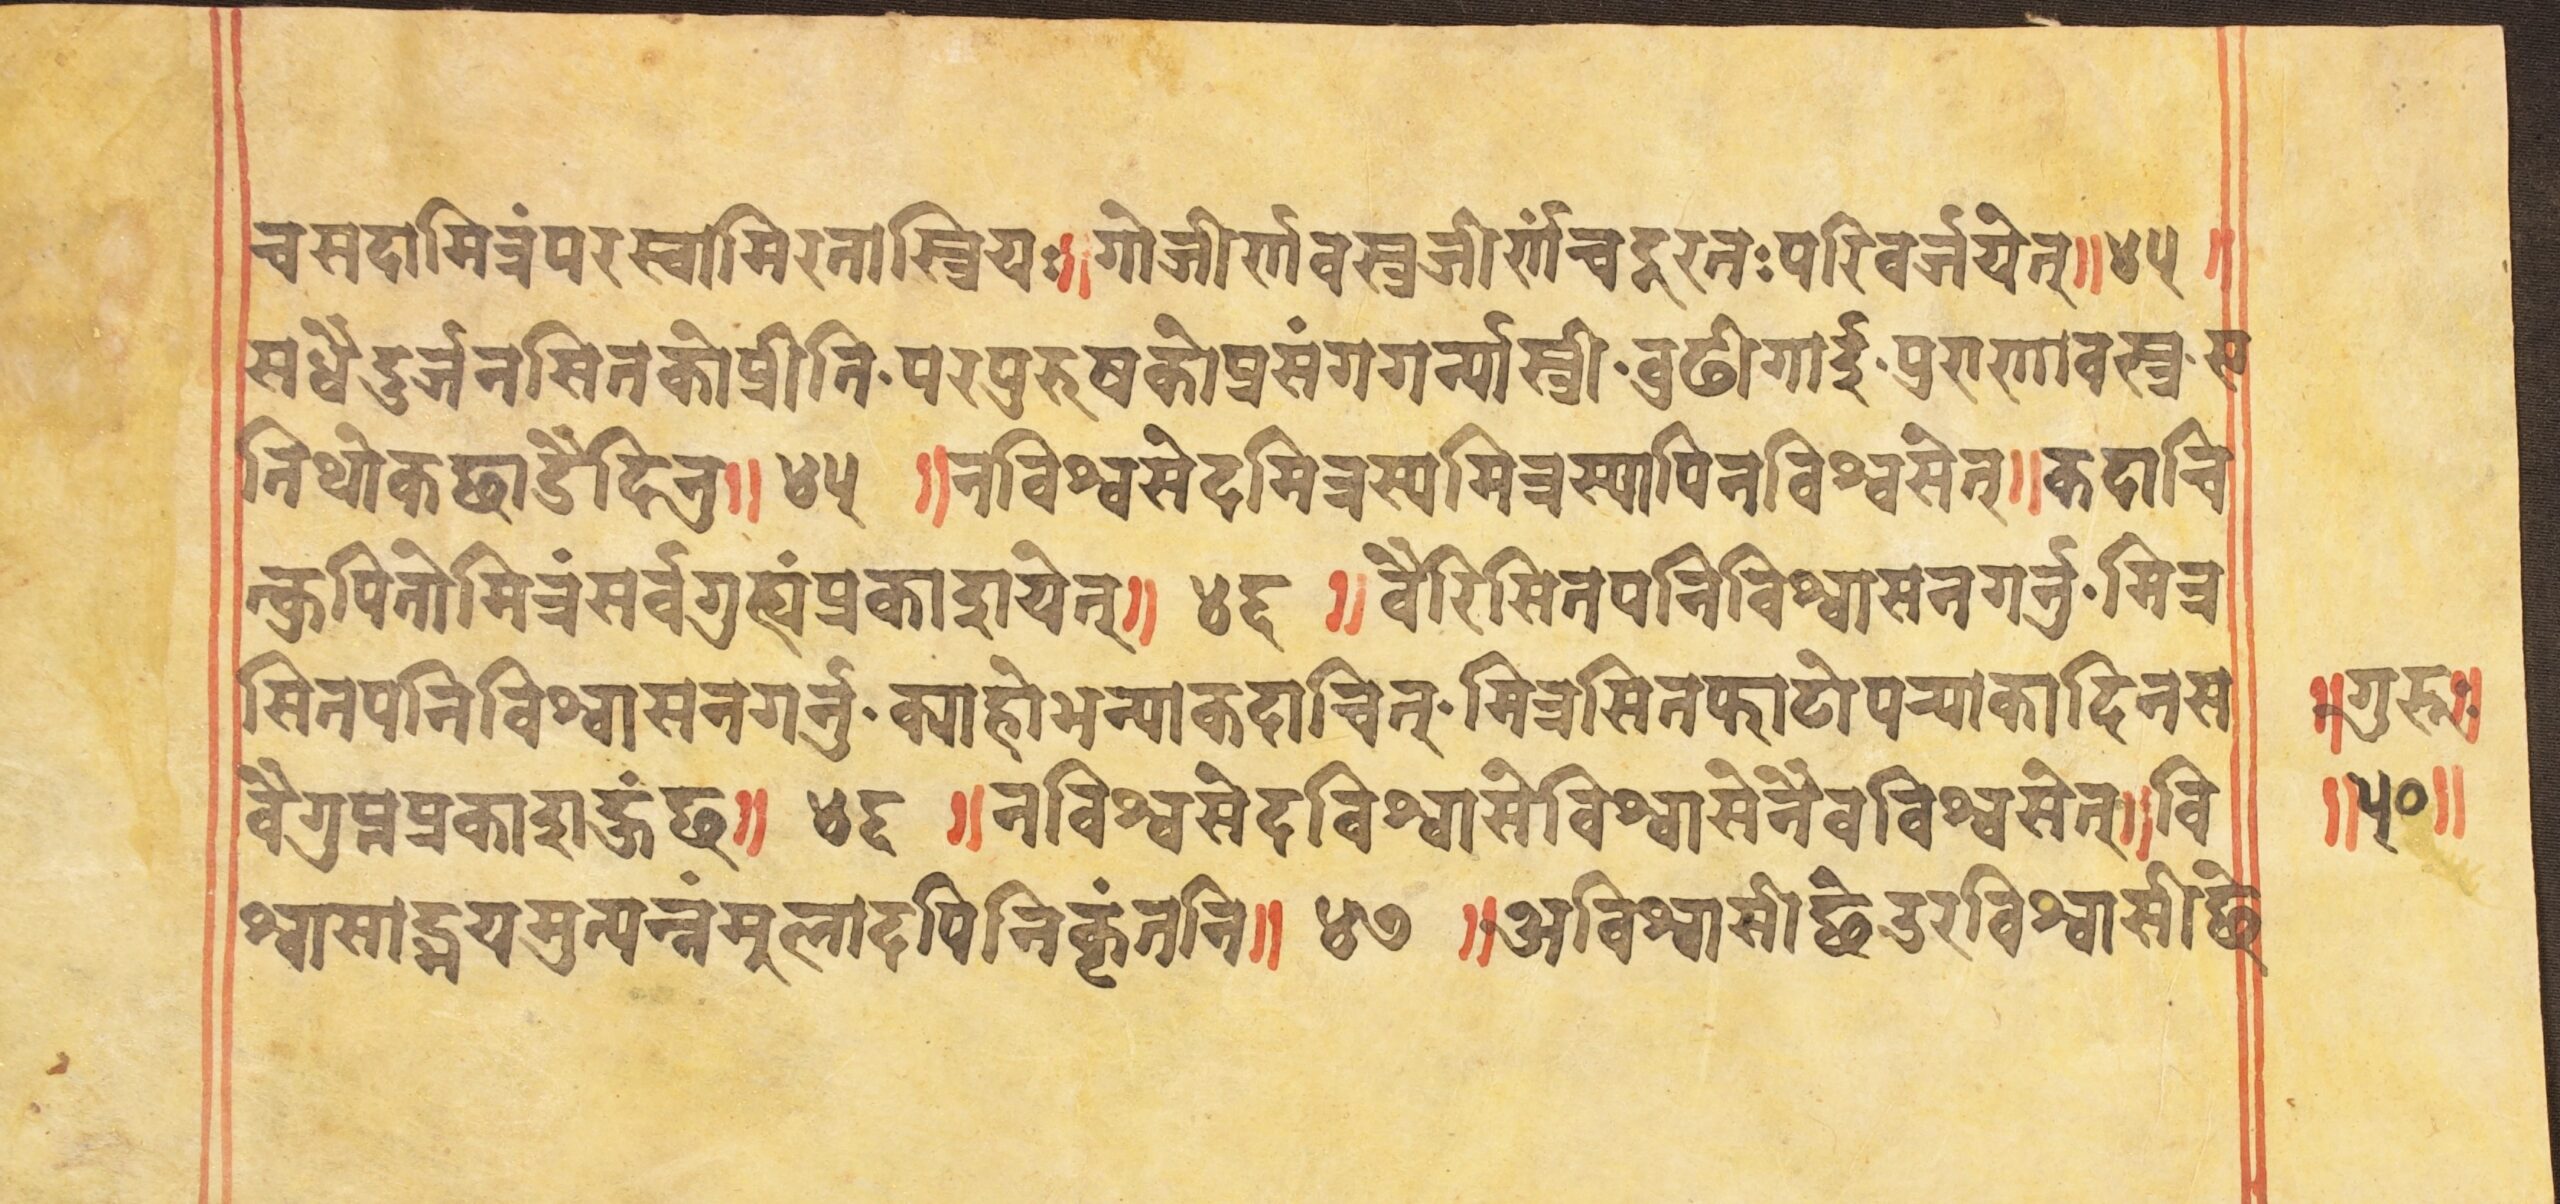 च सदामित्रंपरस्वामिरतास्त्रियः॥ गोजीर्णावस्त्रजीर्णांचदूरतःपरिवर्जयेत्॥४५॥
सधैदुर्जनसितकोप्रीति·परपुरुषकोप्रसंगगर्न्यास्त्री·वुढीगाई·पुराणावस्त्र·य
तिथोकछाडैदिनु॥ ४५ ॥नविश्वसेदमित्रस्यमित्रस्यापिनविश्वसेत्॥कदाचि
त्कुपितोमित्रंसर्वगुह्यंप्रकाशयेत्॥ ४६ ॥वैरिसितपनिविश्वासनगर्नु·मित्र
सितपनिविश्वासनगर्नु·क्याहोभन्याकदाचित्·मित्रसितफाटोपर्‍याकादिनस
वैगुप्तप्रकाशगर्छ॥ ४६ ॥नविश्वसेदविश्वासेविश्वासेनैवविश्वसेत्॥वि
श्वासाद्भयमुत्पन्नंमुलादपिनिकृंतति॥ ४७ ॥अविश्वासीछेउरविश्वासीछे
॥गुरुः॥
॥५०॥